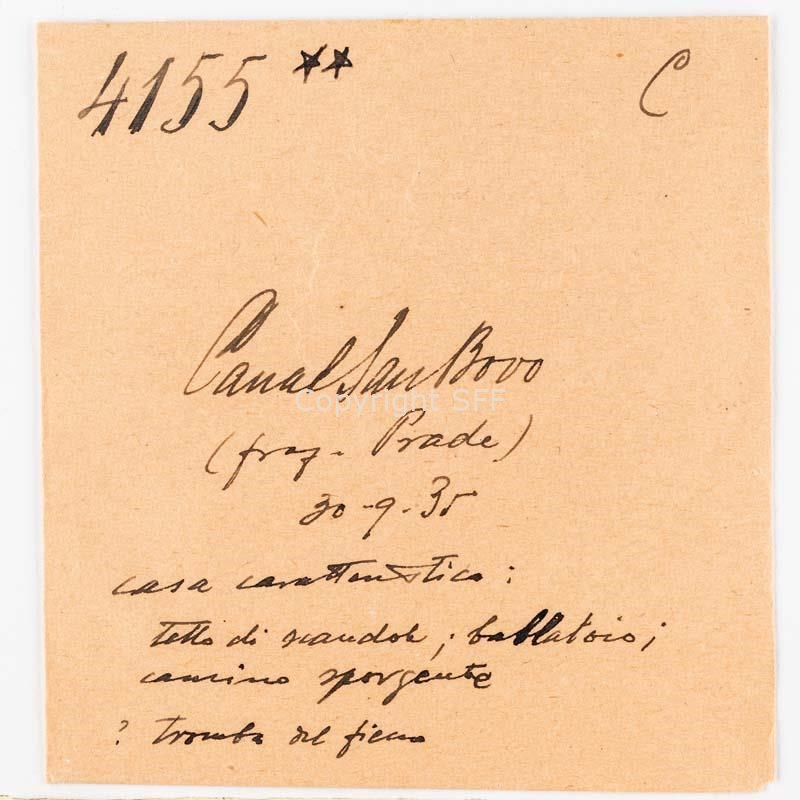 4155 ** C
Canal San Bovo
Copyright SFF
(fraz. Prade)
30-9-35
casa caratteristica:
tetto di scandole; ballatoio;
camino sporgente
? tromba del fieno